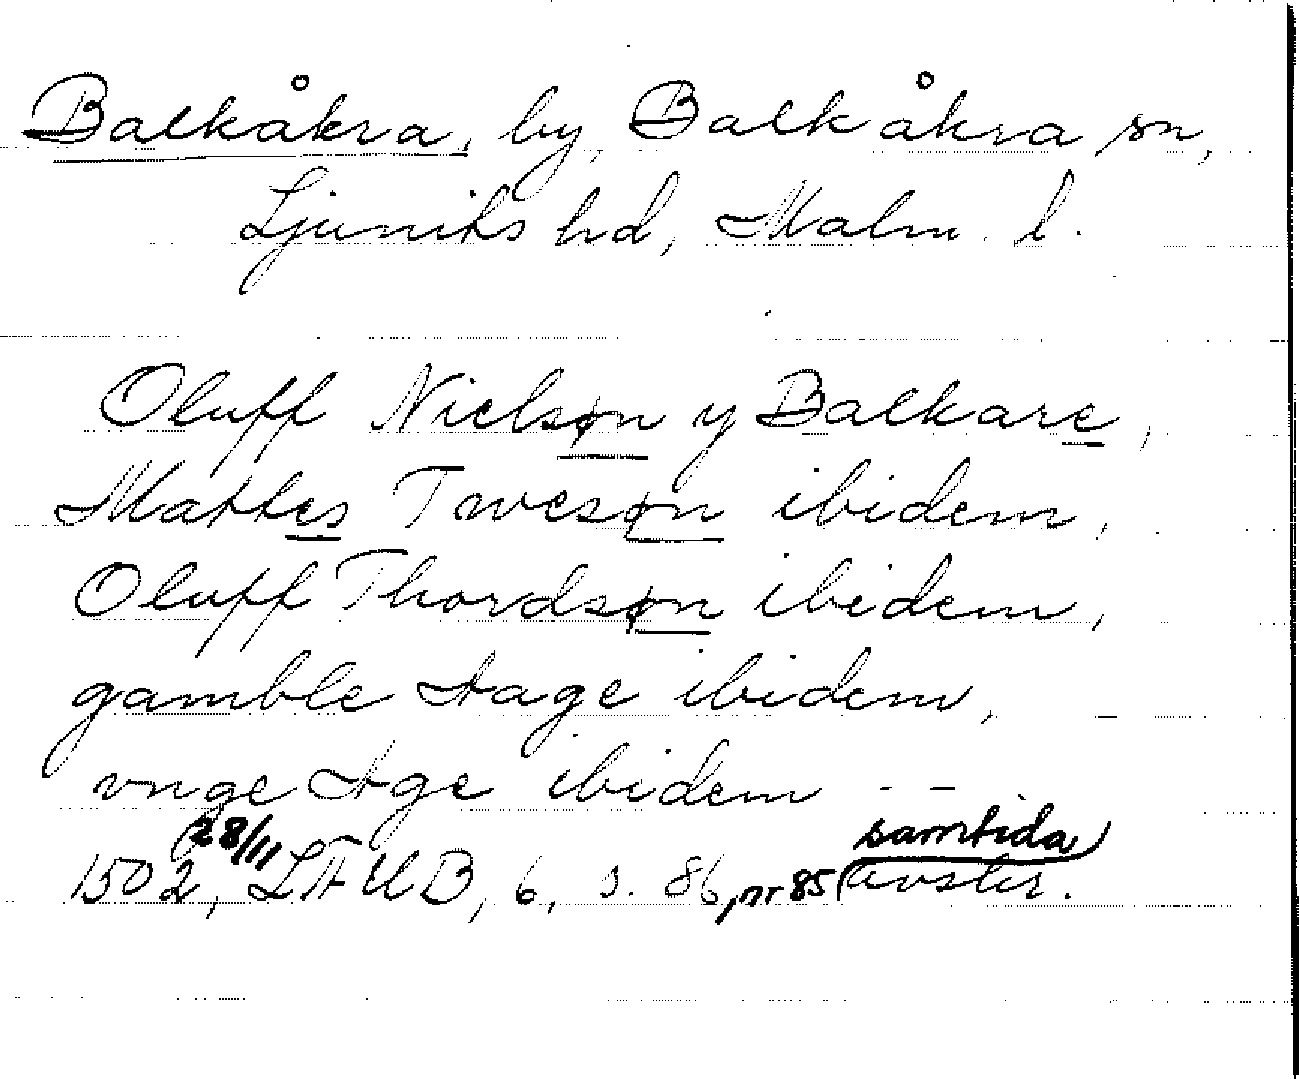 Balkåkra, by, Balkåkra sn,
Ljunits hd, Malm. l.
Oluff Nielsøn y Balkare,
Mattes Twesøn ibidem,
Oluff Thordsøn ibidem,
gamble Aage ibidem,
vnge Age ibidem - -
1502 28/11, LÄUB, 6, s. 86, nr 85 (samtida
avskr.)